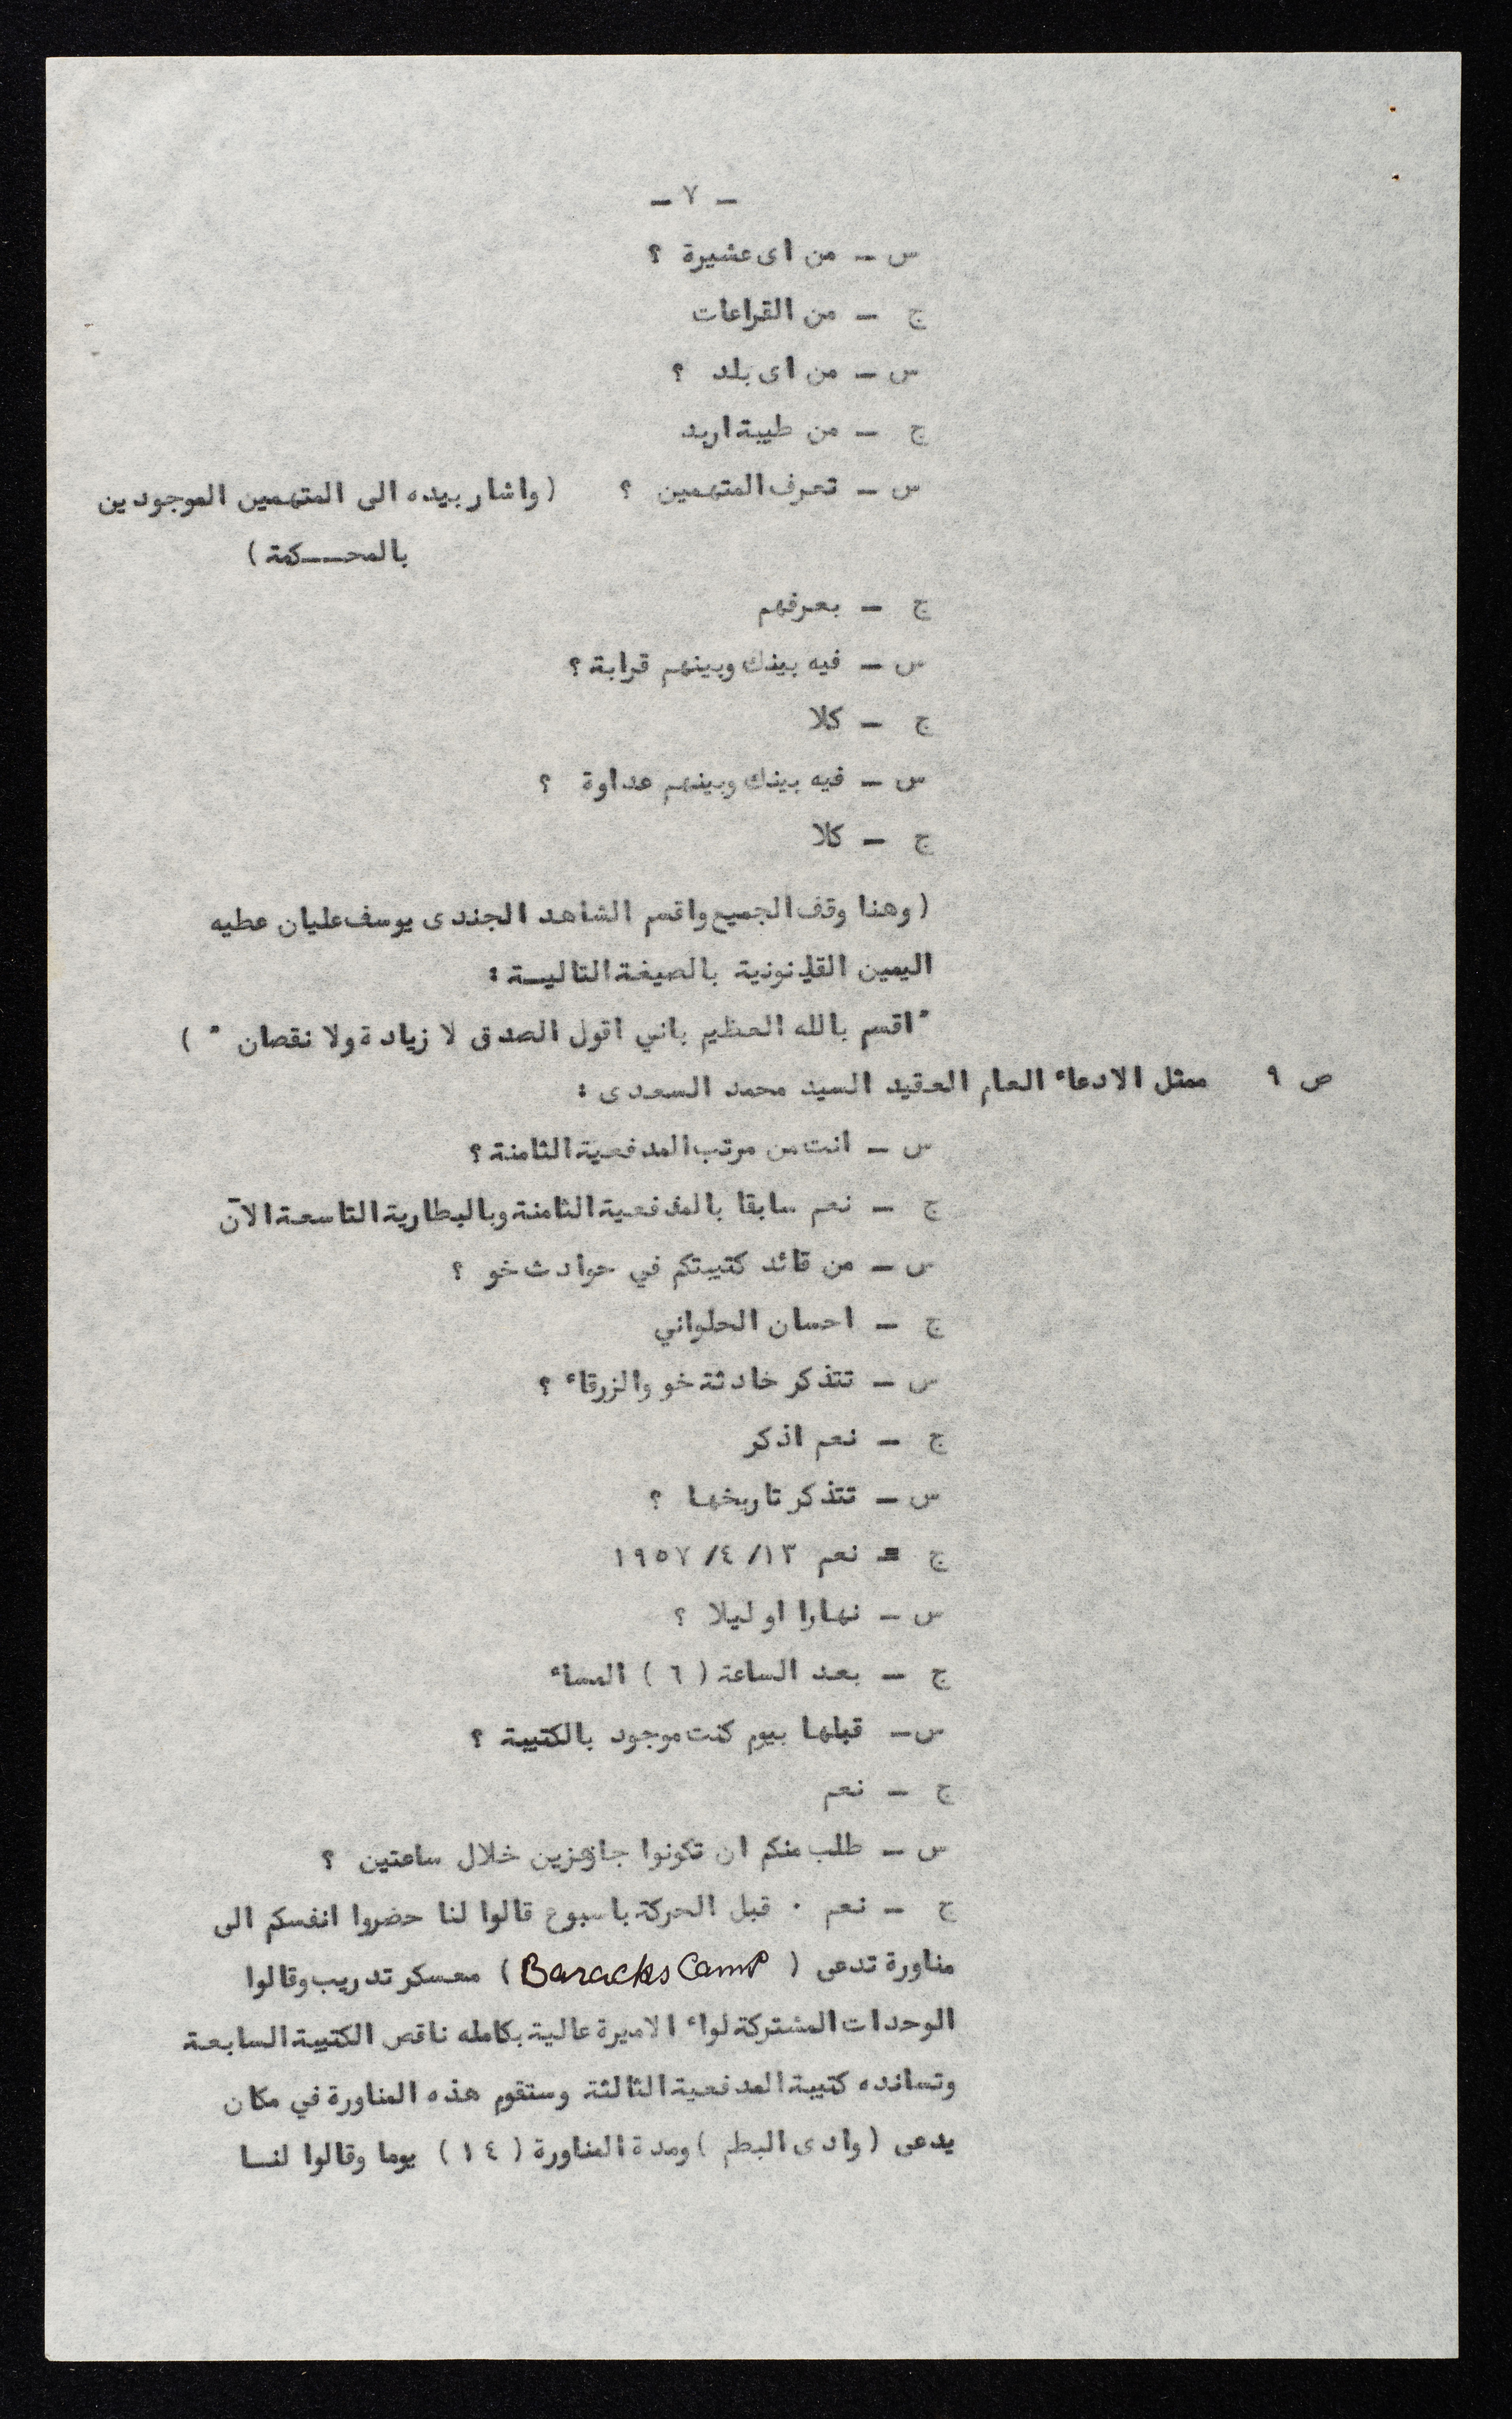 – ٧ –
س – من اى عشيرة ؟
ج – من القراعات
س – من اى بلد ؟
ج – من طيبة اربد
س – تعرف المتهمين ؟ (واشار بيده الى المتهمين الموجودين
بالمحـــكمة)
ج – بعرفهم
س – فيه بينك وبينهم قرابة ؟
ج – كلا
س – فيه بينك وبينهم عداوة ؟
ج – كلا
(وهنا وقف الجميع واقسم الشاهد الجندى يوسف عليان عطيه
اليمين القانونية بالصيغة التاليـة :
" اقسم بالله العظيم باني اقول الصدق لا زيادة ولا نقصان " )
ص ٩ ممثل الادعاء العام العقيد السيد محمد السعدى :
س – انت من مرتب المدفعية الثامنة ؟
ج – نعم سابقا بالمدفعية الثامنة وبالبطارية التاسعة الآن
س – من قائد كتيبتكم في حوادث خو ؟
ج – احسان الحلواني
س – تتذكر حادثة خو والزرقاء ؟
ج – نعم اذكر
س – تتذكر تاريخها ؟
ج = نعم ١٣/ ٤/ ١٩٥٧
س – نهارا او ليلا ؟
ج – بعد الساعة ( ٦ ) المساء
س – قبلها بيوم كنت موجود بالكتيبة ؟
ج – نعم
س – طلب منكم ان تكونوا جاهزين خلال ساعتين ؟
ج – نعم . قبل الحركة باسبوع قالوا لنا حضروا انفسكم الى
مناورة تدعى ( Baracks Camp ) معسكر تدريب وقالوا
الوحدات المشتركة لواء الاميرة عالية بكامله ناقص الكتيبة السابعة
وتسانده كتيبة المدفعية الثالثة وستقوم هذه المناورة في مكان
يدعى (وادى البطم ) ومدة المناورة ( ١٤ ) يوما وقالوا لنـا